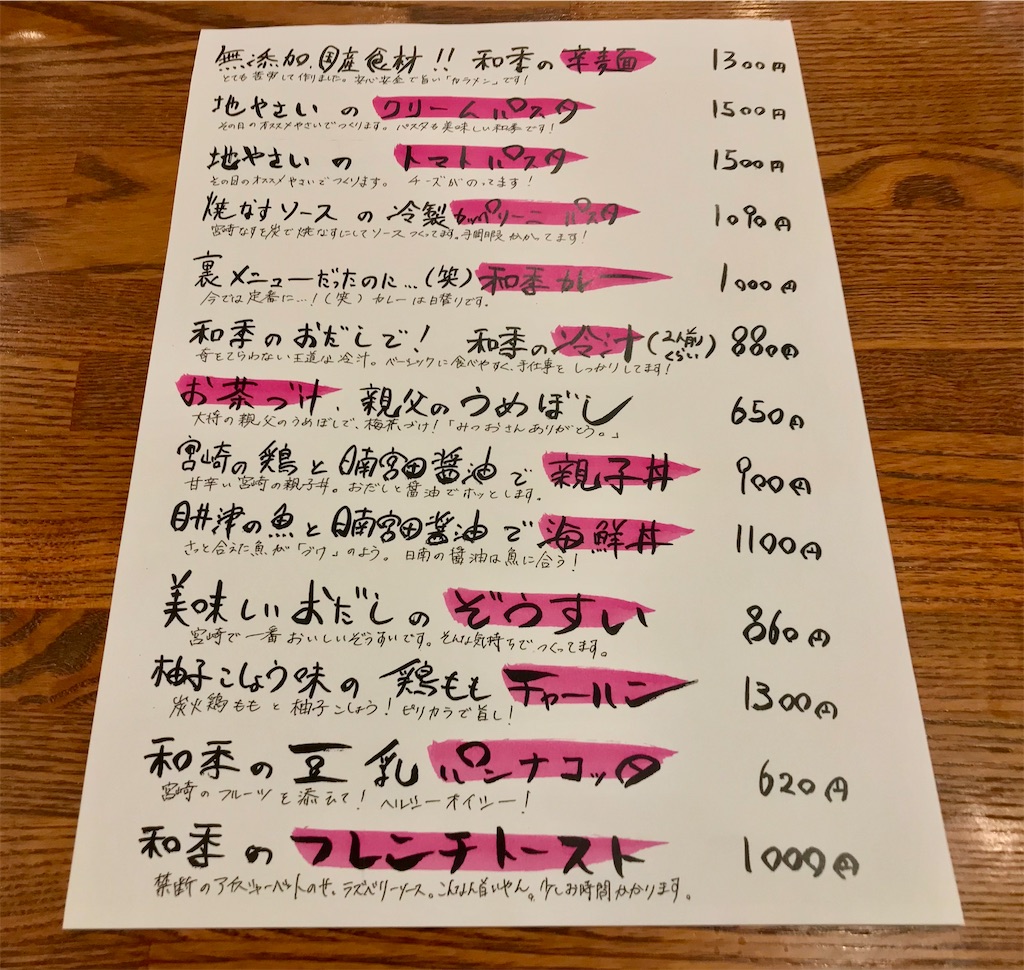 無添加、国産食材!! 和季の辛麺 1300円
とても苦労して作りました。安心安全で旨い「カラメン」です!
地やさいのクリームパスタ 1500円
その日のオススメやさいでつくります。パスタも美味しい和季です!
地やさいのトマトパスタ 1500円
その日のオススメやさいでつくります。チーズがのってます!
焼なすソースの冷製カッペリーニパスタ 1090円
宮崎なすを炭で焼なすにしてソースつくってます。手間暇かかってます!
裏メニューだったのに…(笑)和季カレー 1000円
今では定番に…!(笑)カレーは日替りです。
和季のおだしで! 和季の冷汁(2人前くらい) 880円
奇をてらわない王道な冷汁。ベーシックに食べやすく、手仕事をしっかりしてます!
お茶づけ、親父のうめぼし 650円
大将の親父のうめぼしで、梅茶づけ!「みつおさんありがとう。」
宮崎の鶏と日南宮田醤油で親子丼 900円
甘辛い宮崎の親子丼。おだしと醤油でホッとします。
目井津の魚と日南宮田醤油で海鮮丼 1100円
さっと合えた魚が「づけ」のよう。日南の醤油は魚に合う!
美味しいおだしのぞうすい 860円
宮崎で一番おいしいぞうすいです。そんな気持ちでつくってます。
柚子こしょう味の鶏ももチャーハン 1300円
炭火鶏ももと柚子こしょう!ピリカラで旨し!
和季の豆乳パンナコッタ 620円
宮崎のフルーツを添えて!ヘルシーオイシー!
和季のフレンチトースト 1000円
禁断のアイスシャーベットのせ、ラズベリーソース。こんなん旨いやん。少しお時間かかります。